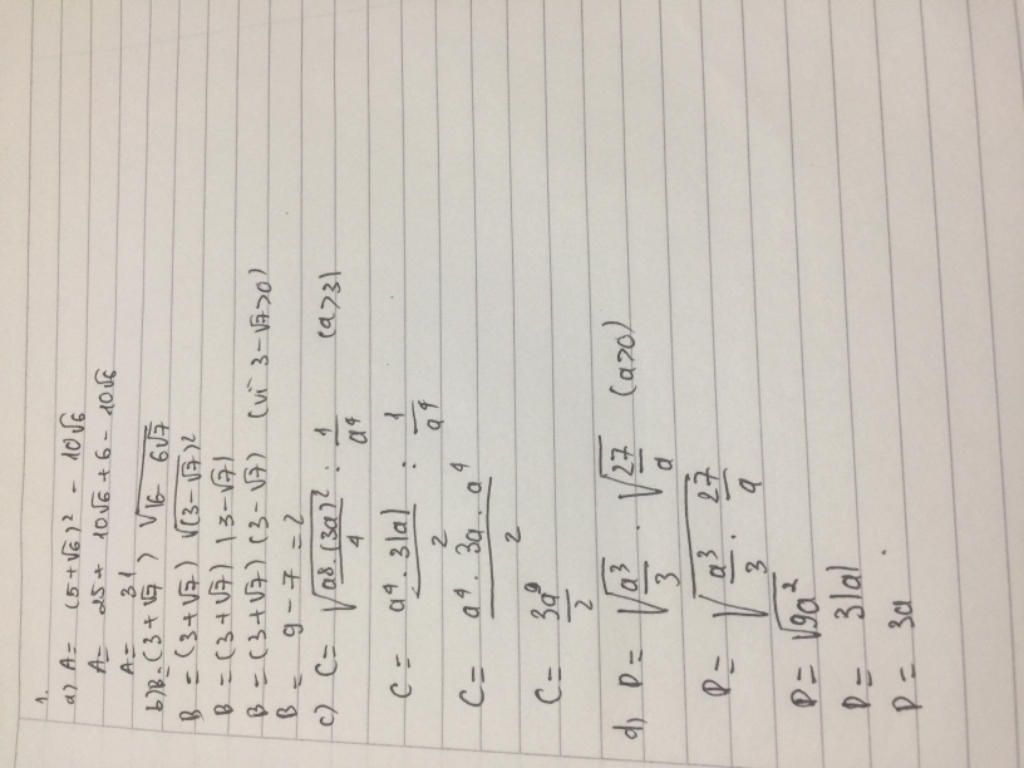 1.
a) A = (5+√6)² - 10√6
A = 25 + 10√6 + 6 - 10√6
A = 31
b) B = (3+√7) √(16 - 6√7)
B = (3+√7) √(3-√7)²
B = (3+√7) |3-√7|
B = (3+√7) (3-√7) (vì 3-√7>0)
B = 9 - 7 = 2
c) C = √(a⁸.(3a)²/4) : 1/a⁴ (a>3)
C = a⁴.3|a|/2 : 1/a⁴
C = a⁴.3a.a⁴/2
C = 3a⁹/2
d) D = √(a³/3) . √(27/a) (a>0)
D = √(a³/3 . 27/a)
D = √9a²
D = 3|a|
D = 3a.